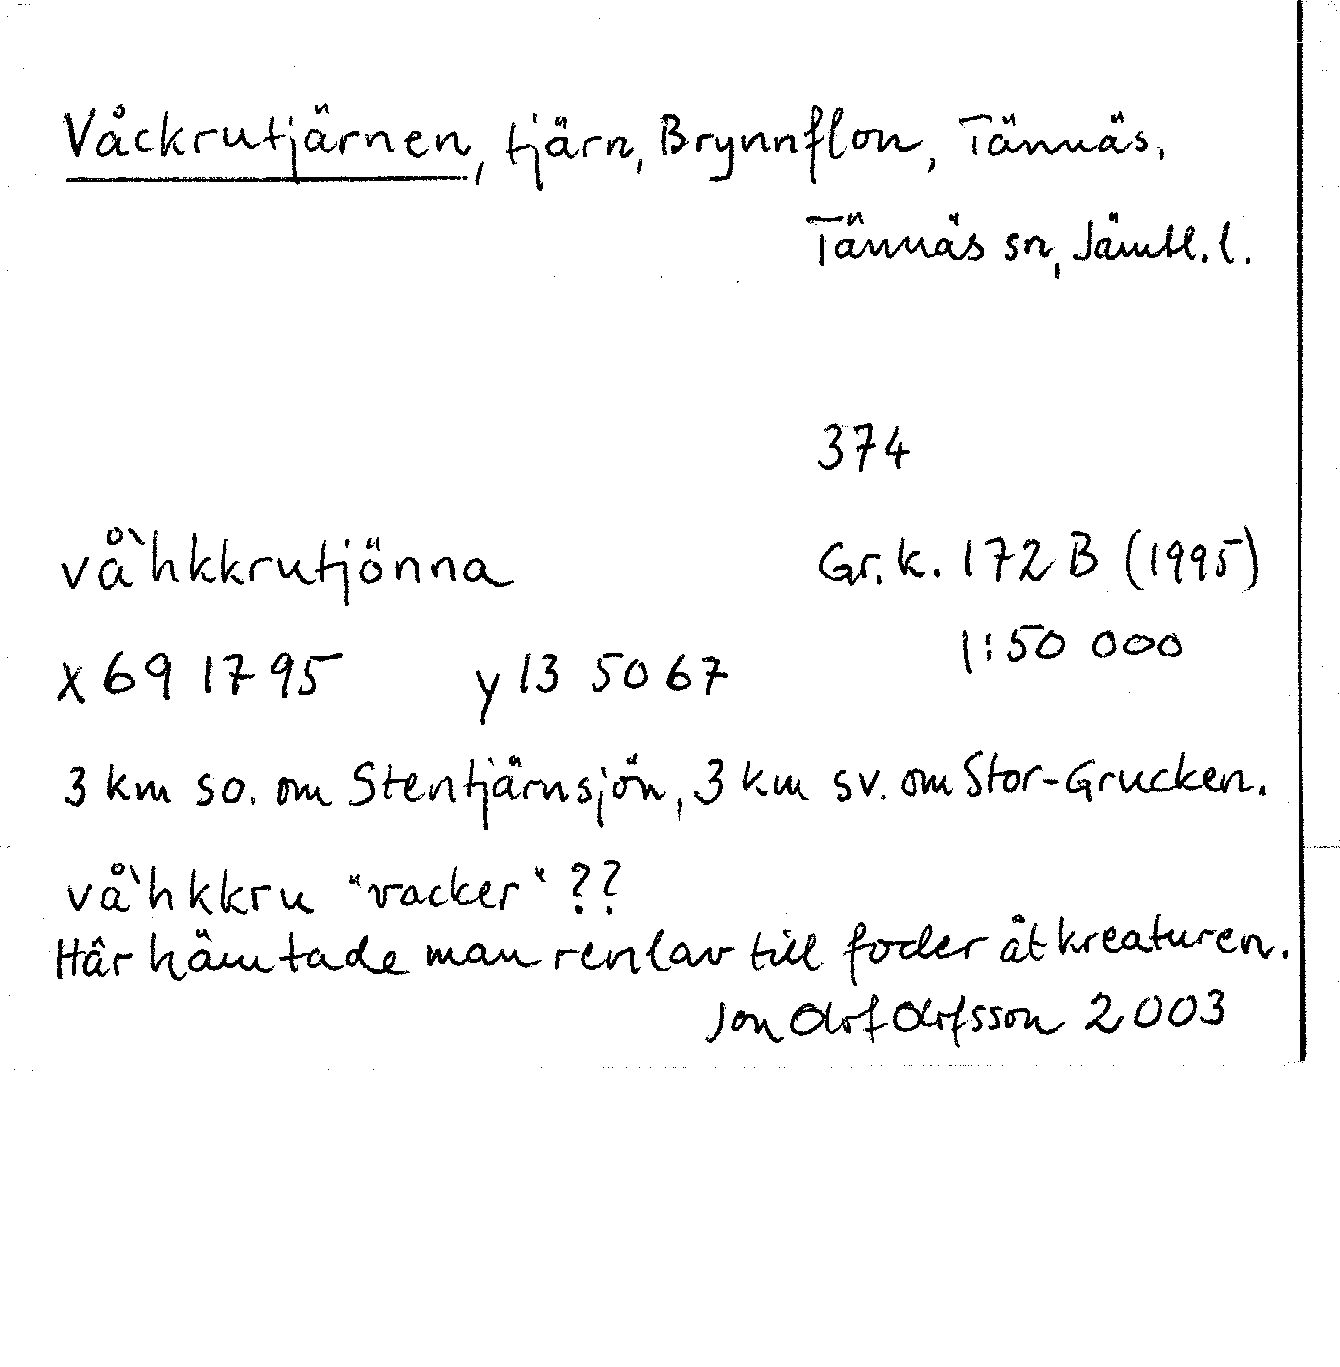 Våckrutjärnen, tjärn, Brynnflon, Tännäs,
Tännäs sn, Jämtl. l.
374
vå`hkkrutjönna
Gr. k. 172 B (1995)
1:50 000
x 69 17 95 y 13 50 67
3 km so. om Stentjärnsjön, 3 km sv. om Stor-Grucken.
vå`hkkru "vacker" ??
Här hämtade man renlav till foder åt kreaturen.
Jon Olof Olofsson 2003